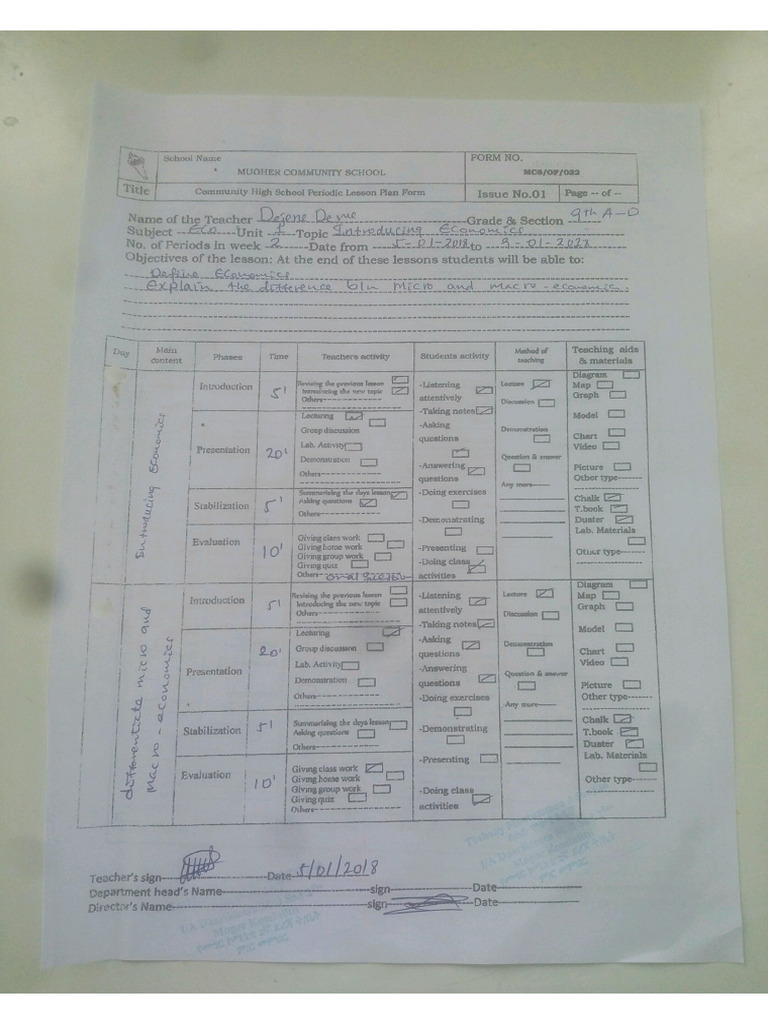 School Name
MUGHER COMMUNITY SCHOOL
FORM NO.
MCS/OF/022
Title
Community High School Periodic Lesson Plan Form
Issue No.01
Page -- of --
Name of the Teacher Dejene Grade & Section 9th A-D
Subject Eco Unit 1 Topic Introducing Economics
No. of Periods in week 2 Date from 5-01-2018 to 9-01-
Objectives of the lesson: At the end of these lessons students will be able to:
Define Economics
explain the difference b/n micro and macro-economic.
Day Main content Phases Time Teachers activity Students activity Method of teaching Teaching aids & materials
Introducing Economics
Introduction 5'
Revising the previous lesson
Introducing the new topic
Others
Presentation 20'
Lecturing
Group discussion
Lab. Activity
Demonstration
Others
Stabilization 5'
Summarising the days lesson
Asking questions
Others
Evaluation 10'
Giving class work
Giving home work
Giving group work
Giving quiz
Others oral question
-Listening attentively
-Taking notes
-Asking questions
-Answering questions
-Doing exercises
-Demonstrating
-Presenting
-Doing class activities
Lecture
Discussion
Demonstration
Question & answer
Any more
Diagram
Map
Graph
Model
Chart
Video
Picture
Other type
Chalk
T.book
Duster
Lab. Materials
Other type
differentiate micro and
macro - economics
Introduction 5'
Revising the previous lesson
Introducing the new topic
Others
Presentation 20'
Lecturing
Group discussion
Lab. Activity
Demonstration
Others
Stabilization 5'
Summarising the days lesson
Asking questions
Others
Evaluation 10'
Giving class work
Giving home work
Giving group work
Giving quiz
Others
-Listening attentively
-Taking notes
-Asking questions
-Answering questions
-Doing exercises
-Demonstrating
-Presenting
-Doing class activities
Lecture
Discussion
Demonstration
Question & answer
Any more
Diagram
Map
Graph
Model
Chart
Video
Picture
Other type
Chalk
T.book
Duster
Lab. Materials
Other type
Teacher's sign Date 5/01/2018
Department head's Name sign Date
Director's Name sign Date